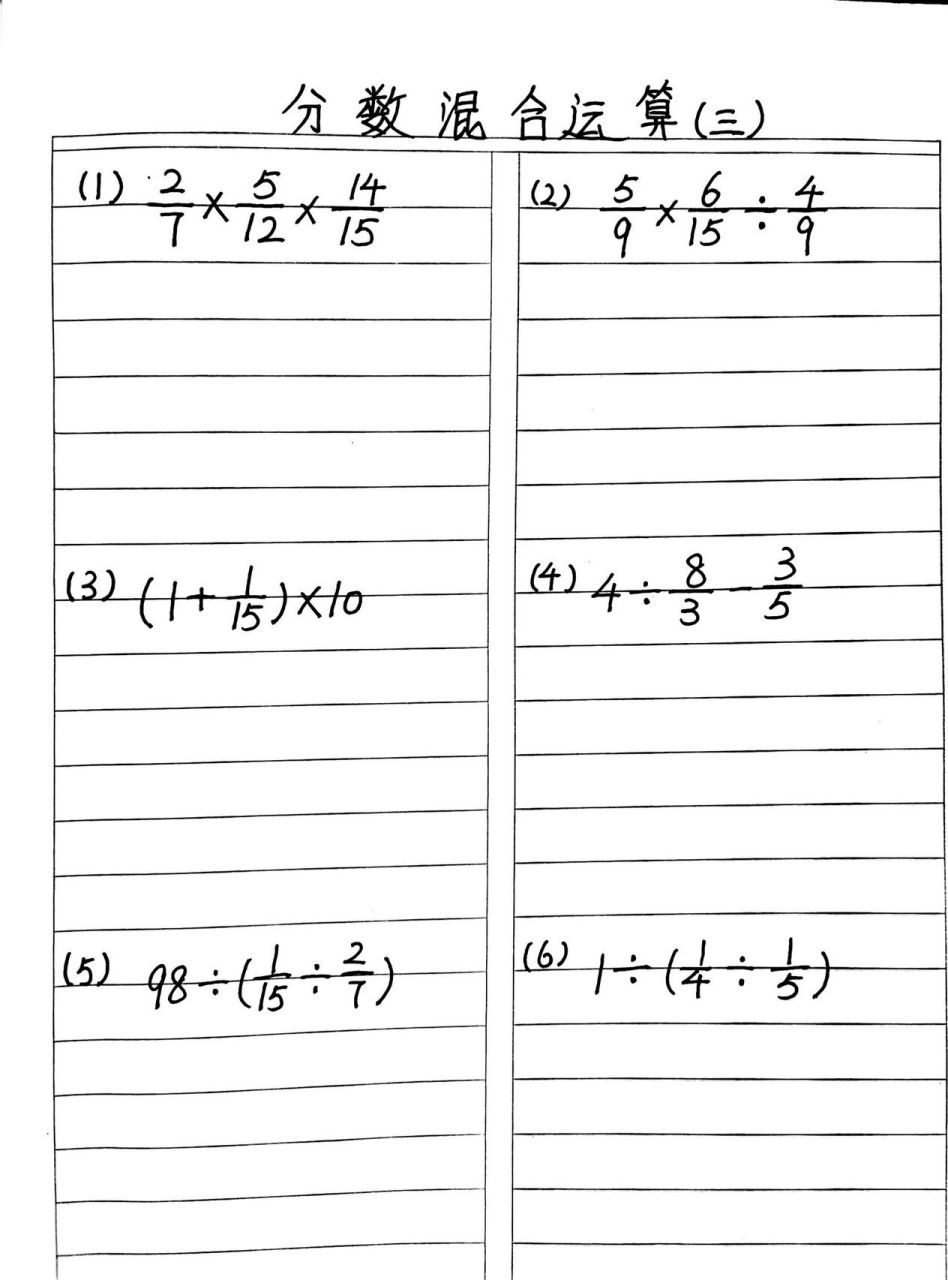 分数混合运算(三)
(1) 2/7 × 5/12 × 14/15
(2) 5/9 × 6/15 ÷ 4/9
(3) (1 + 1/15) × 10
(4) 4 ÷ 8/3 - 3/5
(5) 98 ÷ (1/15 ÷ 2/7)
(6) 1 ÷ (1/4 ÷ 1/5)